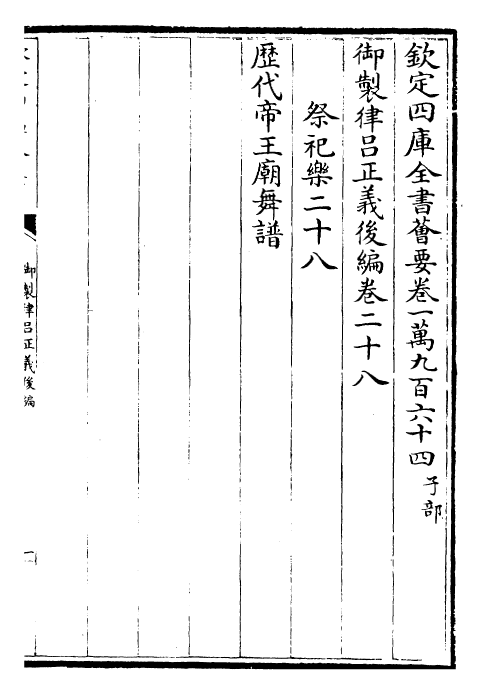 欽定四庫全書薈要卷一萬九百六十四 子部
御製律呂正義後編卷二十八
祭祀樂二十八
歷代帝王廟舞譜
御製律呂正義後編
一